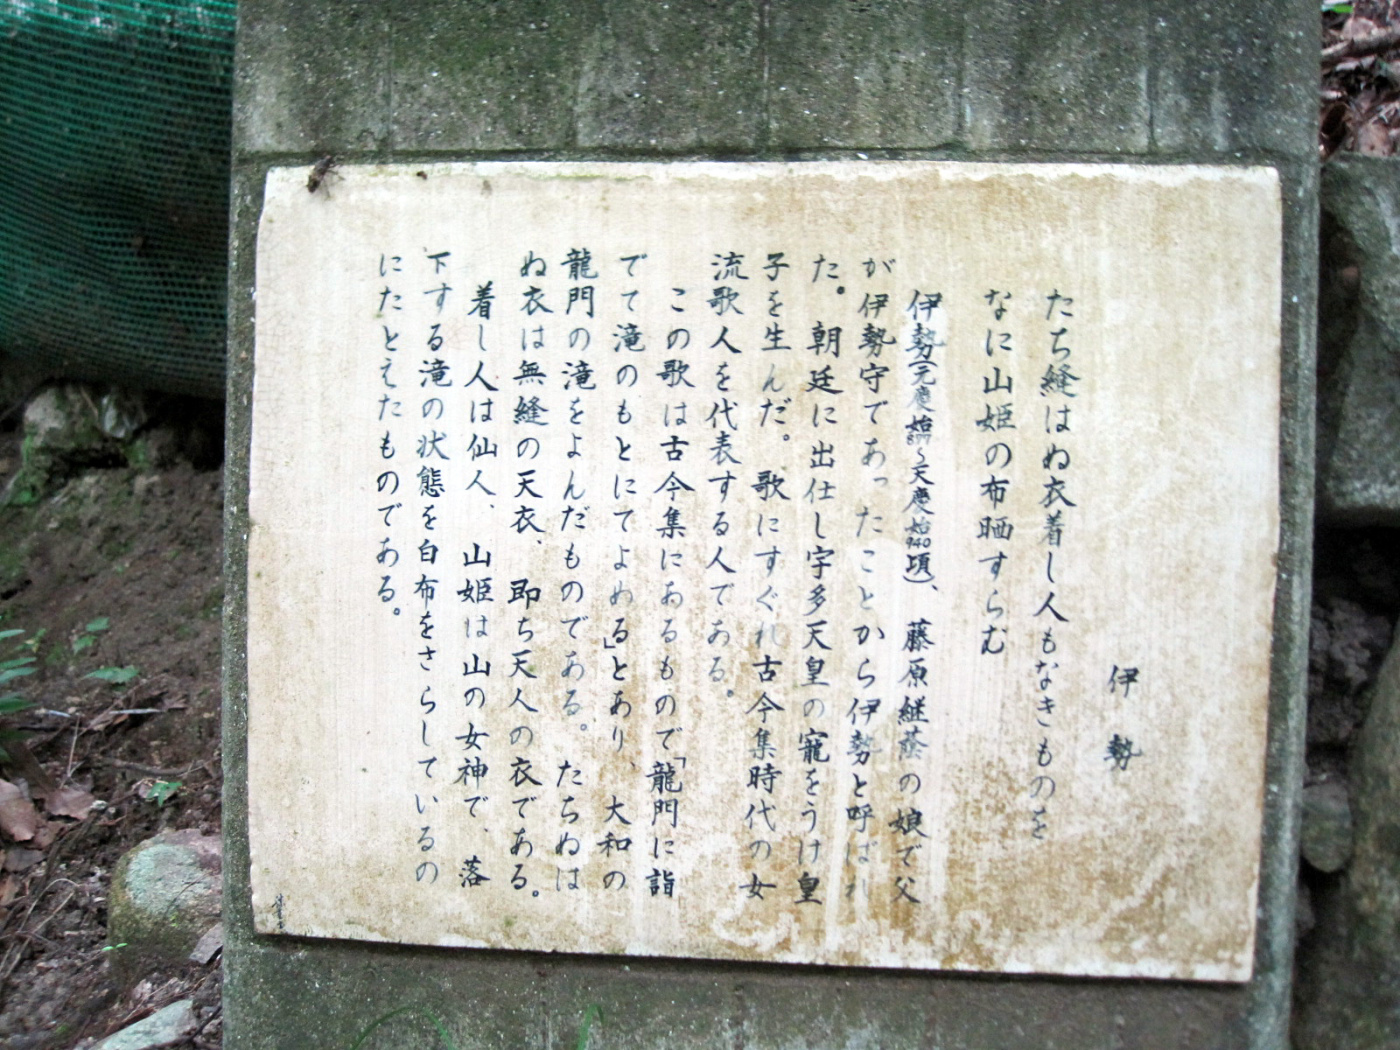 伊勢
たち縫はぬ衣着し人もなきものを
なに山姫の布晒すらむ
伊勢(元慶始877~天慶始940頃)、藤原継蔭の娘で父
が伊勢守であったことから伊勢と呼ばれ
た。朝廷に出仕し宇多天皇の寵をうけ皇
子を生んだ。歌にすぐれ古今集時代の女
流歌人を代表する人である。
この歌は古今集にあるもので「龍門に詣
でて滝のもとにてよめる」とあり、大和の
龍門の滝をよんだものである。たちぬは
ぬ衣は無縫の天衣、即ち天人の衣である。
着し人は仙人、山姫は山の女神で、落
下する滝の状態を白布をさらしているの
にたとえたものである。